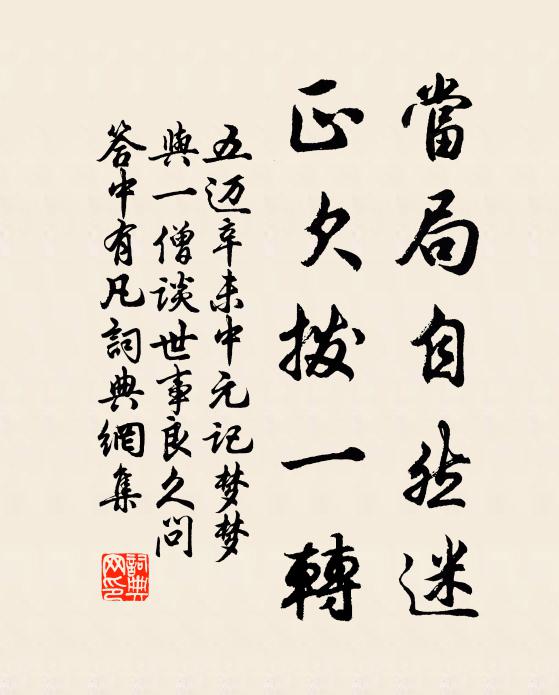 當局自然迷
正欠撥一轉
五迈辛未中元记梦梦
與一僧談世事良久问
答中有凡詞典網集
詞典
网印